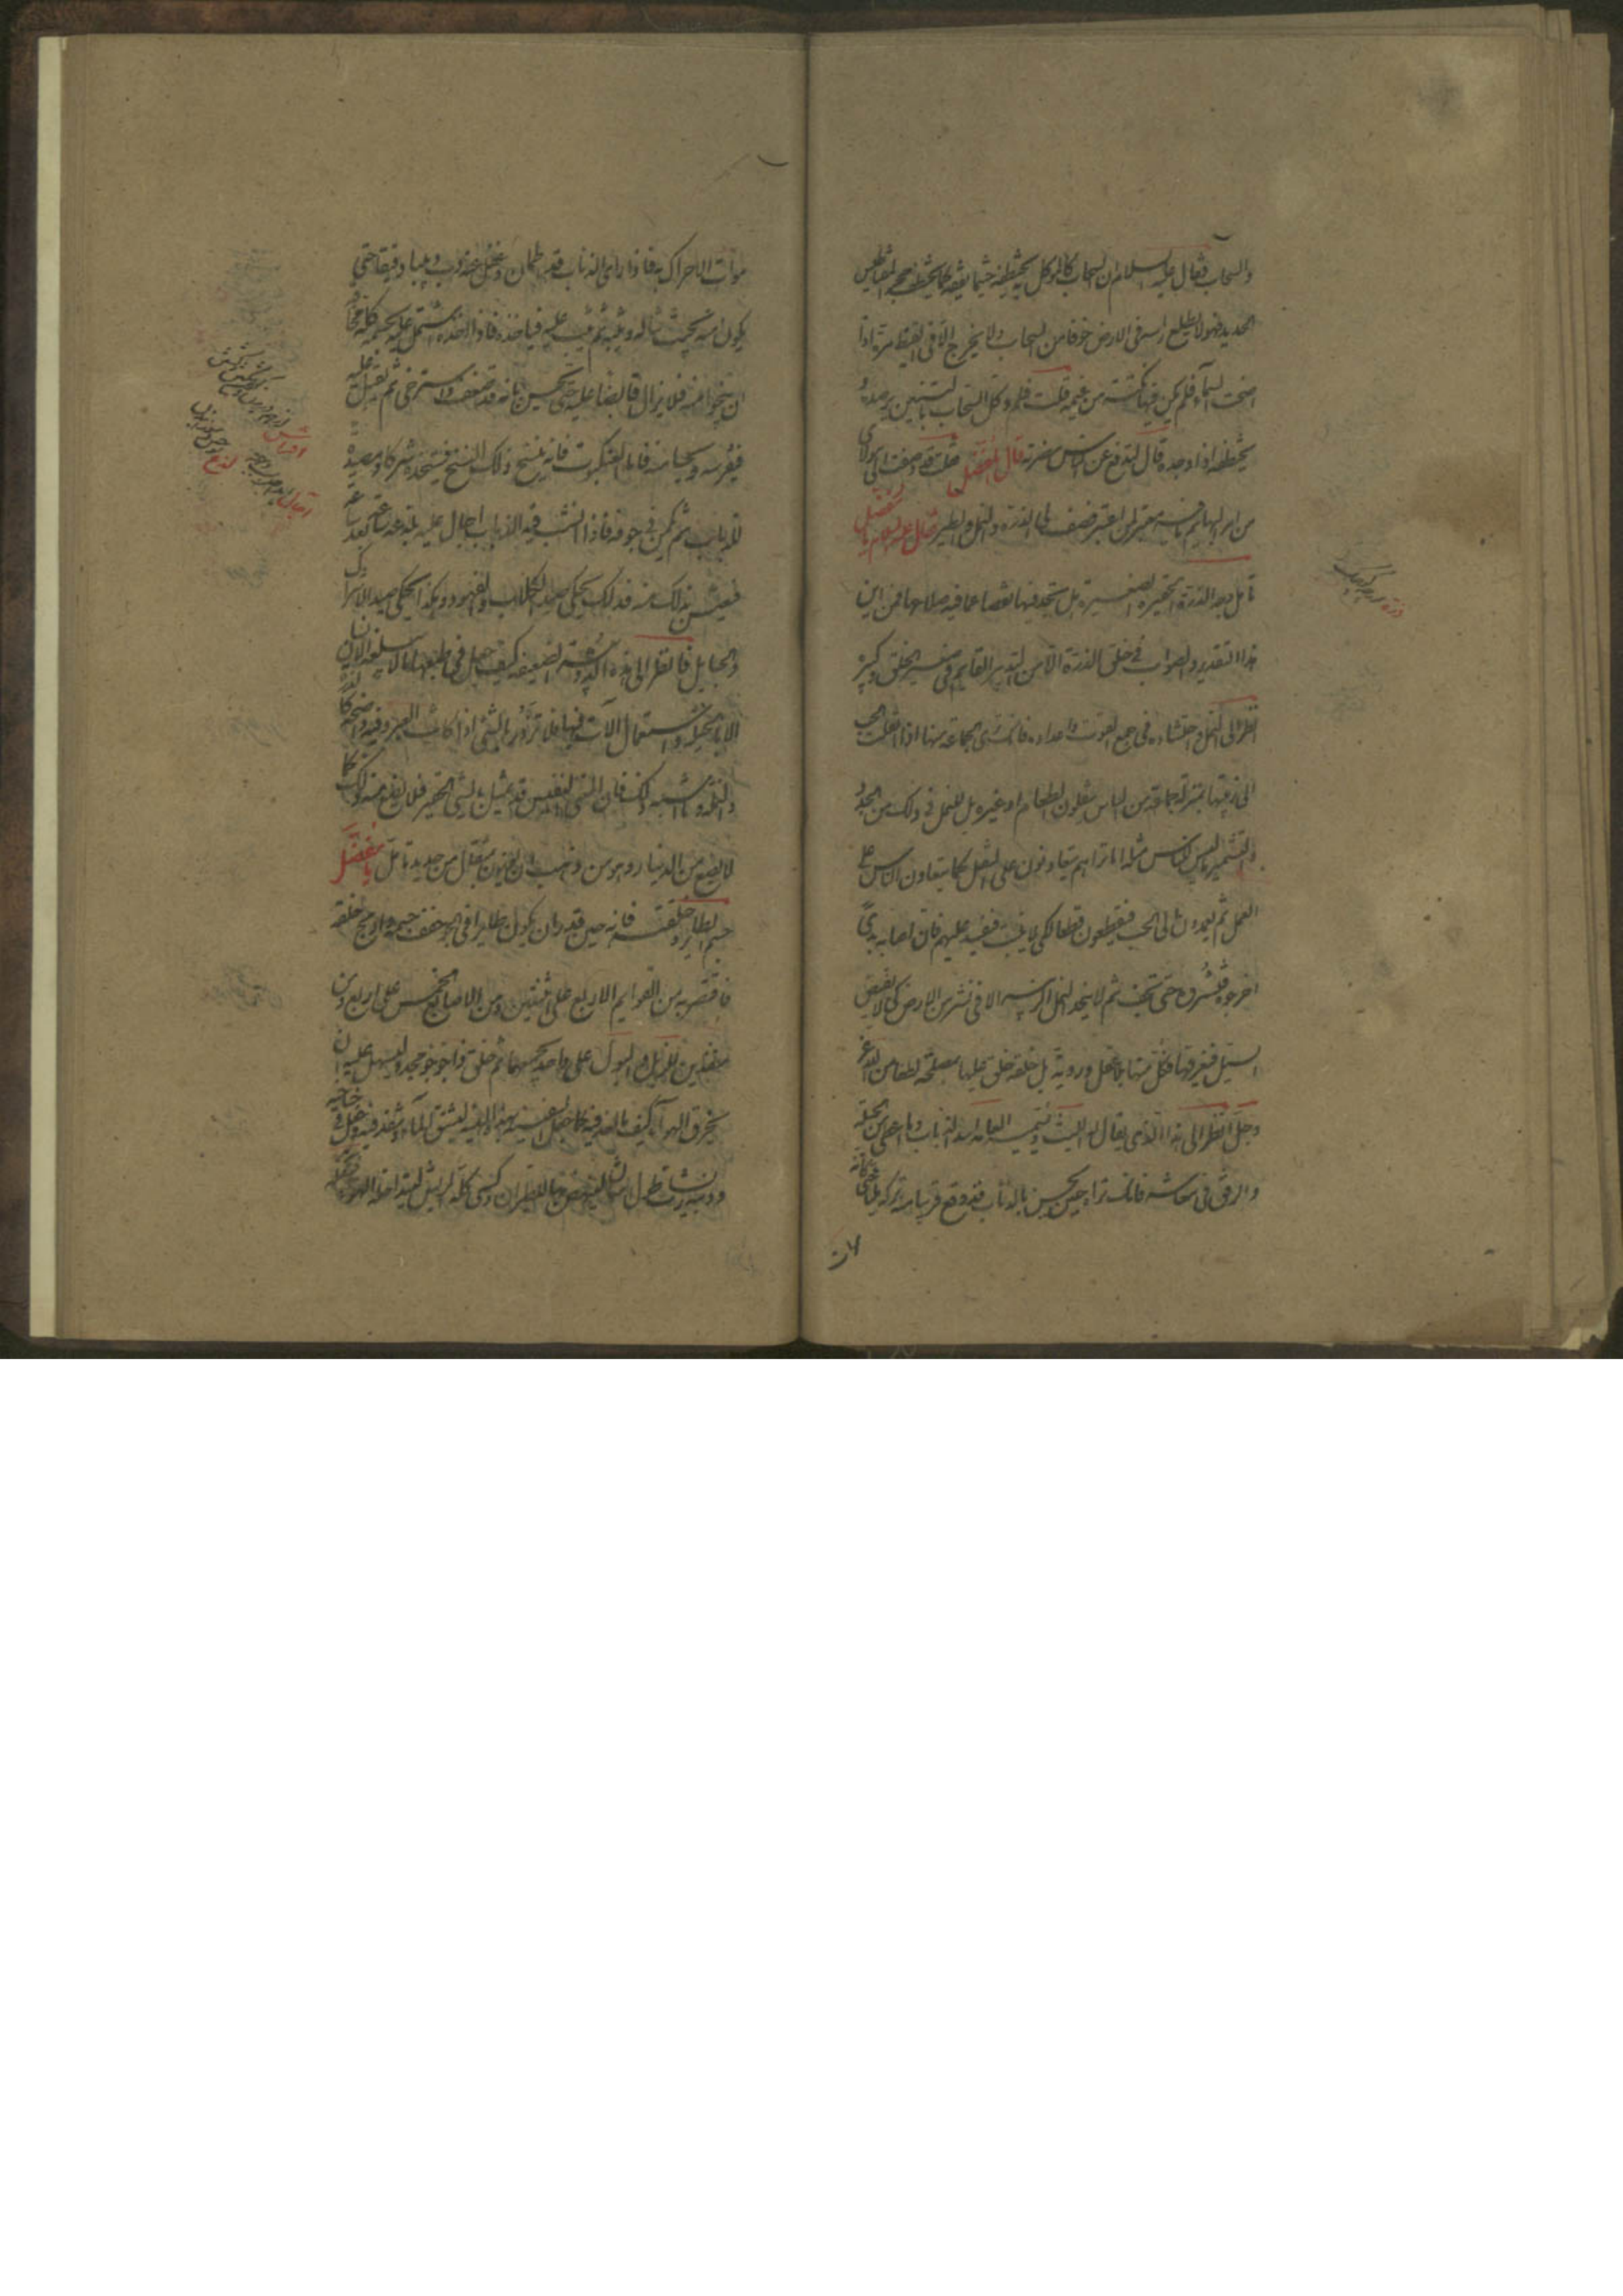 والسحاب فقال عليه السلام ان السحاب كالموكل به يختطفه حيثما ثقفه كما يختطف حجر المقناطيس
الحديد فهو لا يطلع راسه في الارض خوفا من السحاب ولا يخرج الا في القيظ مرة اذا
اضحت السماء فلم يكن فيها نكتة من غيمة قلت فلم وكل السحاب بالتنين يرصده
يختطفه اذا وجده قال ليدفع عن الناس مضرته قال المفضل فقلت قد وصفت لي يا مولاي
من امر البهائم ما فيه معتبر لمن اعتبر فصف لي الذرة والنمل والطير فقال عليه السلام يا مفضل
تامل وجه الذرة الحقيرة الصغيرة هل تجد فيها نقصا عما فيه صلاحها فمن اين
هذا التقدير والصواب في خلق الذرة الا من التدبير القائم في صغير الخلق وكبيره
انظر الى النمل واحتشاده في جمع القوت واعداده فانك ترى الجماعة منها اذا نقلت الحب
الى زبيتها بمنزلة جماعة من الناس ينقلون الطعام او غيره بل للنمل في ذلك من الجد و
والتشمير ما ليس للناس مثله اما تراهم يتعاونون على النقل كما يتعاون الناس على
العمل ثم يعمدون الى الحب فيقطعونه قطعا لكي لا ينبت فيفسد عليهم فان اصابه ندى
اخرجوه فنشروه حتى يجف ثم لا يتخذ النمل الزبية الا في نشز من الارض كي لا يفيض
السيل فيغرقها فكل منها بلا عقل وروية بل خلقة خلق عليها لمصلحة لطفا من الله عز
وجل انظر الى هذا الذي يقال له الليث وتسميه العامة اسد الذباب وما اعطي من الحيلة
والرفق في معاشه فانك تراه حين يحس بالذباب قد وقع قريبا منه تركه مليا حتى كانه
موات لا حراك به فاذا راى الذباب قد اطمان وغفل عنه دب دبيبا دقيقا حتى
يكون منه بحيث يناله وثبه ثم يثب عليه فياخذه فاذا اخذه اشتمل عليه بجسمه كله مخافة
ان ينجو منه فلا يزال قابضا عليه حتى يحس بانه قد ضعف واسترخى ثم يقبل عليه
فيفرسه ويحيا منه فاما العنكبوت فانه ينسج ذلك النسج فيتخذه شركا ومصيدة
للذباب ثم يكمن في جوفه فاذا نشب فيه الذباب احال عليه يلدغه ساعة بعد ساعة
فيعيش بذلك منه فذلك يحكي صيد الكلاب والفهود وهكذا يحكي صيد الاشراك
والحبايل فانظر الى هذه الدويبة الضعيفة كيف جعل في طبعها ما لا يبلغه الانسان
الا بالحيلة واستعمال الآلات فيها فلا تزدر بالشئ اذا كانت العبرة فيه واضحة كالذرة
والنملة وما اشبه ذلك فان المعنى النفيس قد يمثل بالشئ الحقير فلا يضع منه ذلك كما
لا يضع من الدينار وهو من ذهب ان يوزن بمثقال من حديد تامل يا مفضل
جسم الطائر وخلقته فانه حين قدر ان يكون طائرا في الجو خفف جسمه وادمج خلقه
فاقتصر به من القوائم الاربع على اثنتين ومن الاصابع الخمس على اربع ومن
منفذين للزبل والبول على واحد يجمعهما ثم خلق ذا جؤجؤ محدد ليسهل عليه ان
يخرق الهواء كيف ما اخذ فيه كما جعل السفينة بهذه الهيئة لتشق الماء وتنفذ فيه وجعل في جناحيه
وذنبه ريشات طوال متان لينهض بها للطيران وكسي كله الريش ليتداخله الهواء فيقله